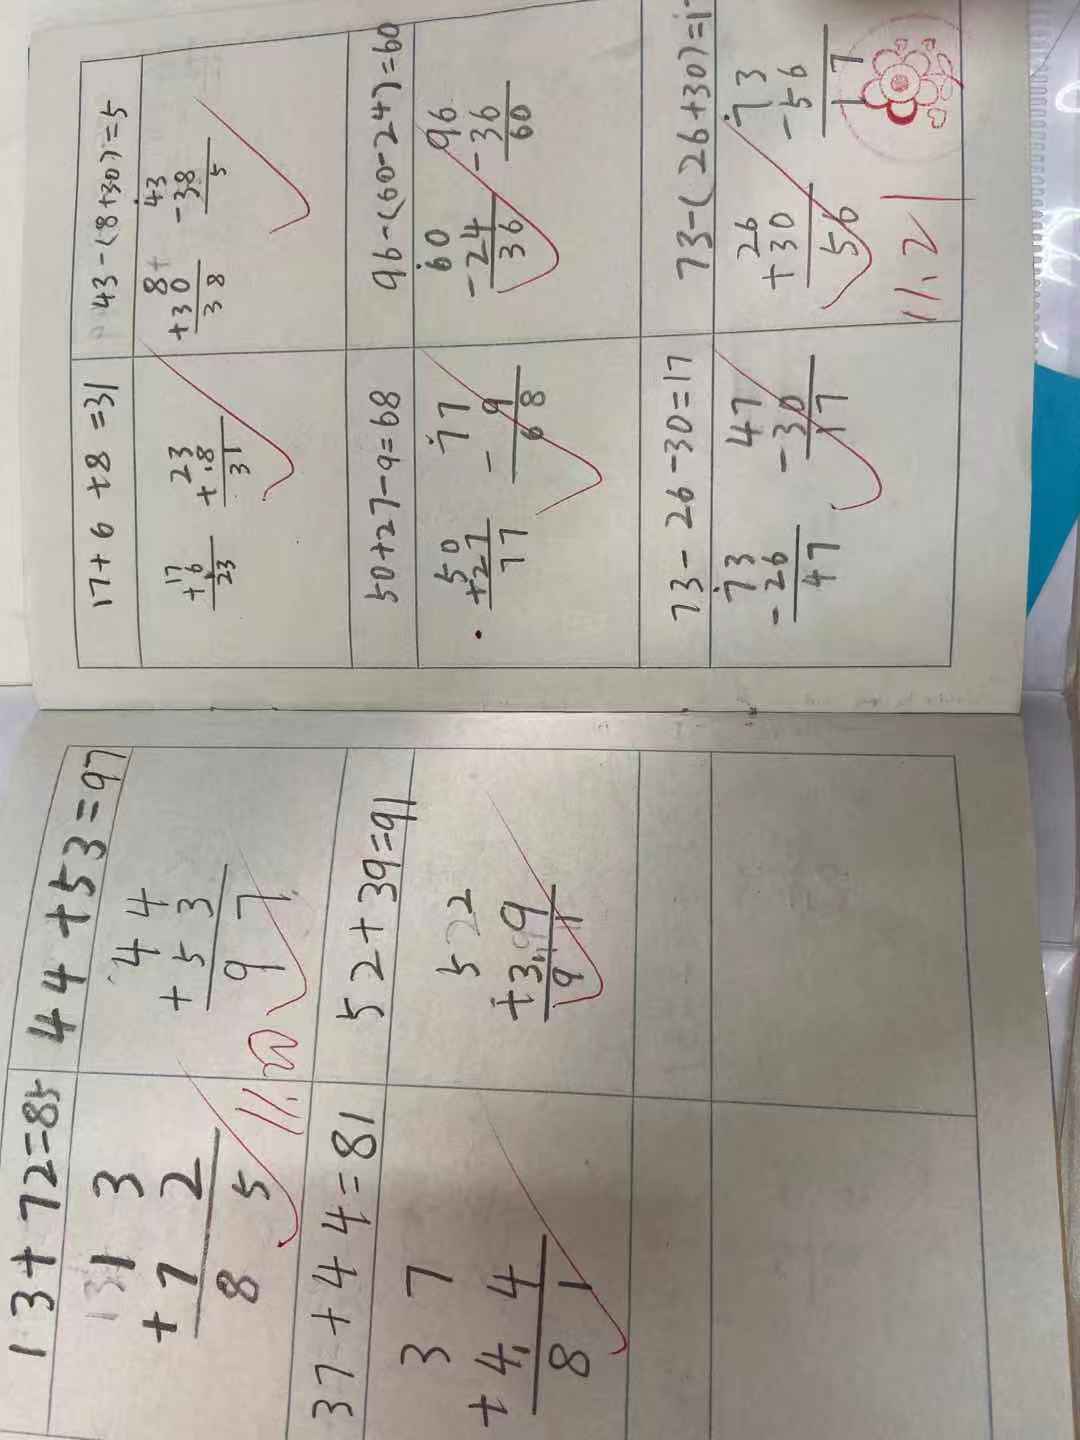 13+72=85
13
+72
85
44+53=97
44
+53
97
11.20
37+44=81
37
+44
81
52+39=91
52
+39
91
17+6+8=31
17
+6
23
23
+8
31
43-(8+30)=5
8
+30
38
43
-38
5
50+27-9=68
50
+27
77
77
-9
68
96-(60-24)=60
60
-24
36
96
-36
60
73-26-30=17
73
-26
47
47
-30
17
73-(26+30)=17
26
+30
56
73
-56
17
11.21